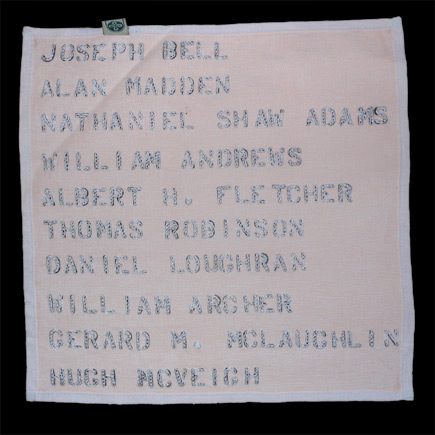 JOSEPH BELL
ALAN MADDEN
NATHANIEL SHAW ADAMS
WILLIAM ANDREWS
ALBERT H. FLETCHER
THOMAS ROBINSON
DANIEL LOUGHRAN
WILLIAM ARCHER
GERARD M. MCLAUGHLIN
HUGH MCVEIGH